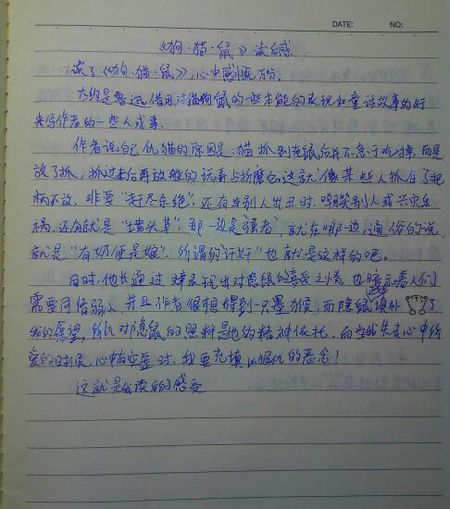 DATE: NO:
《狗·猫·鼠》读后感
读了《狗·猫·鼠》,心中感慨万分.
大约是鲁迅借用对猫狗鼠的一些本能的表现和童话故事的好
来写作者的一些人或事.
作者说自己仇猫的原因是:猫抓到老鼠后并不急于吃掉,而是
放了抓,抓过来后再放般的玩弄与折磨.这就像某些人抓住了把
柄不放,非要“赶尽杀绝”,还有当别人出丑时,嘲笑别人或兴灾乐
祸,还有就是“墙头草”,那一边是强者,就在哪一边,通俗的说
就是“有奶便是娘”,所谓的“汗奸”也就是这样的吧.
同时,他也通过 表现出对隐鼠的喜爱之情,也暗示着人们
需要同情弱 ,并且作者很想得到一只墨猴,而隐鼠填补 了
我的愿望,所以对隐鼠的照料是他的精神依托,而当我失去心中所
爱的时候,心中有空虚时,我要充填以报仇的恶念!
这就是我读后的感受